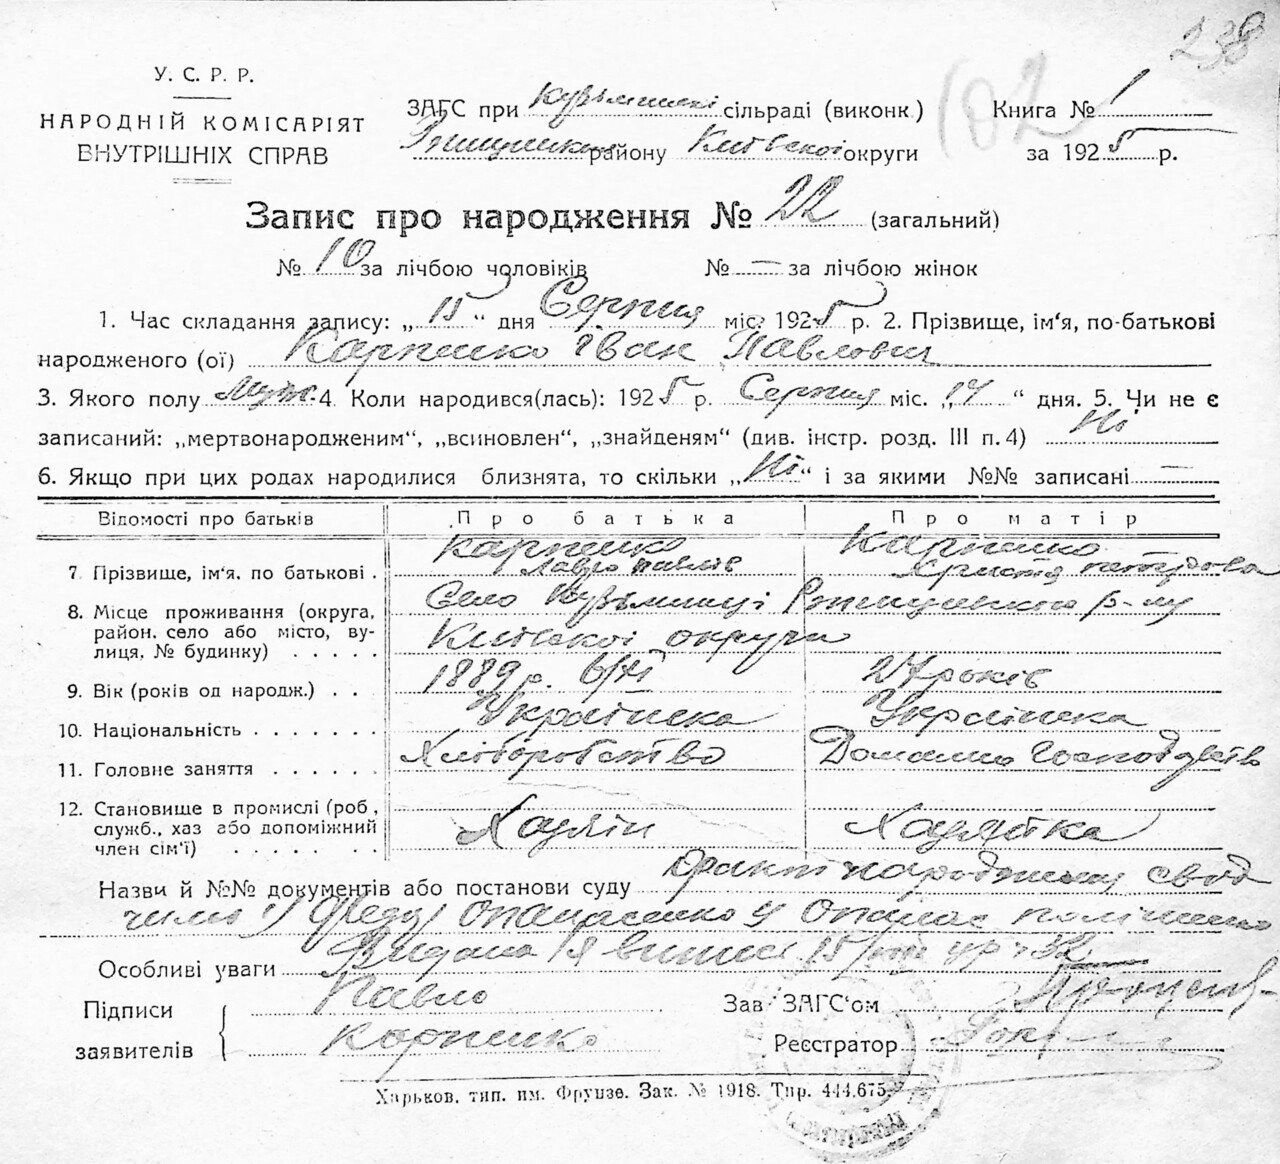 238
102
У. С. Р. Р.
НАРОДНІЙ КОМІСАРІЯТ
ВНУТРІШНІХ СПРАВ
ЗАГС при сільраді (виконк.) Книга № 1
району Київської округи за 1925 р.
Запис про народження № 22 (загальний)
№ 10 за лічбою чоловіків № — за лічбою жінок
1. Час складання запису: „15“ дня Серпня міс. 1925 р. 2. Прізвище, ім‘я, по-батькові
народженого (ої) Карпенко Іван Павлович
3. Якого полу муж. 4. Коли народився(лась): 1925 р. Серпня міс. „14“ дня. 5. Чи не є
записаний: „мертвонародженим“, „всиновлен“, „знайденям“ (див. інстр. розд. III п. 4) Ні
6. Якщо при цих родах народилися близнята, то скільки „Ні“ і за якими №№ записані —
Відомості про батьків Про батька Про матір
Карпенко Карпенко
7. Прізвище, ім‘я, по батькові . Павло Павлів Христя
8. Місце проживання (округа, Село р-ну
район, село або місто, ву- Київської округи
лиця, № будинку) . . . . .
9. Вік (років од народж.) . . 1889 р. 27 років
10. Національність . . . . . . . Українска Українска
11. Головне заняття . . . . . . Хліборобство Домашнє Господарство
12. Становище в промислі (роб.,
служб., хаз або допоміжний Хазяїн Хазяйка
член сім‘ї) . . . . . . . .
Назви й №№ документів або постанови суду народженя свід
Опанасенко Опанас
Особливі уваги Видана виписі 15
Підписи Павло Зав. ЗАГС‘ом
заявителів Карпенко Реєстратор
Харьков. тип. им. Фрунзе. Зак. № 1918. Тир. 444.675.